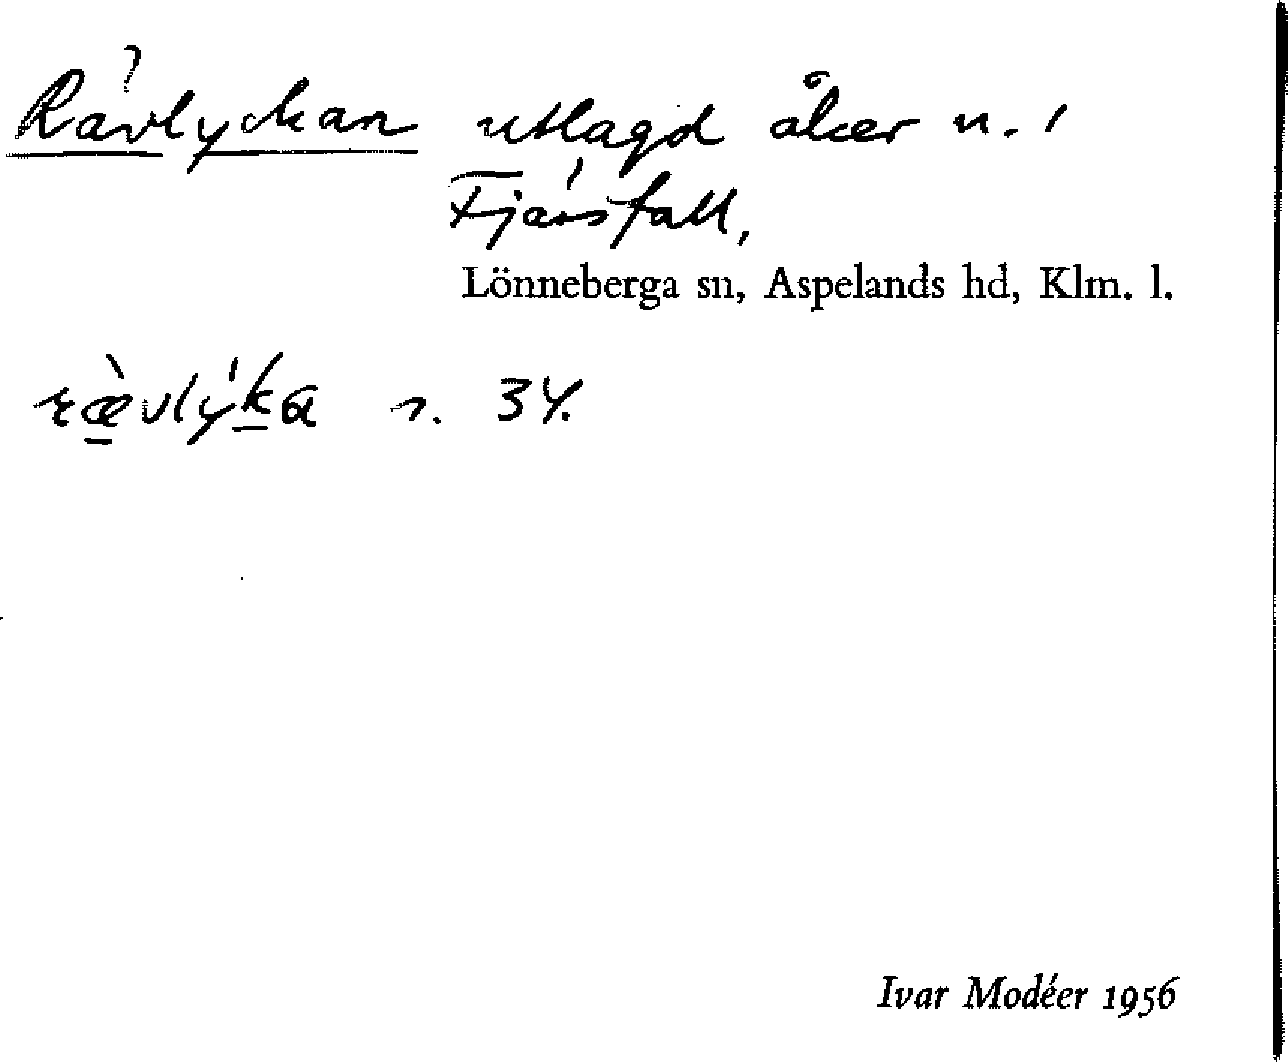 Rävlyckan utlagd åker n. i
Fjärsfall,
Lönneberga sn, Aspelands hd, Klm. l.
ræ̀vlýka s. 34.
Ivar Modéer 1956